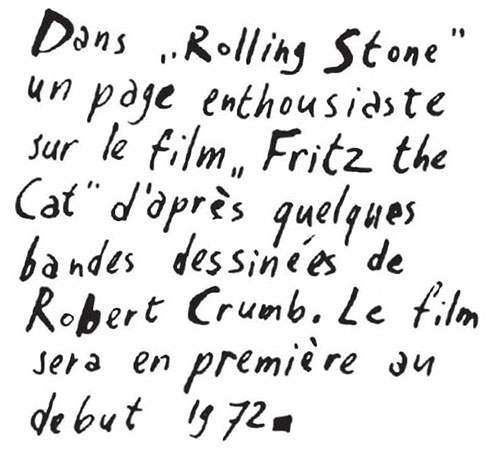 Dans „Rolling Stone"
un page enthousiaste
sur le film „Fritz the
Cat" d'après quelques
bandes dessinées de
Robert Crumb. Le film
sera en première au
debut 1972.